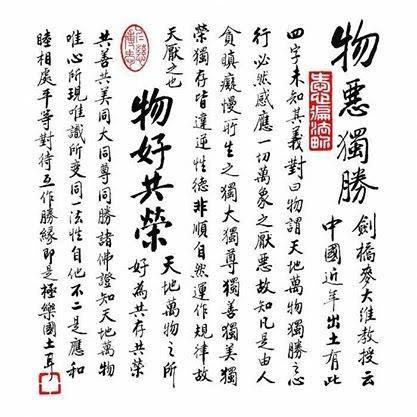 物惡獨勝
劍橋麥大維教授云
中國近年出土有此
四字未知其義對曰物謂天地萬物獨勝之心
行必然感應一切萬象之厭惡故知凡是由人
貪瞋癡慢所生之獨大獨尊獨善獨美獨
榮獨存皆違逆性德非順自然運作規律故
天厭之也
物好共榮
天地萬物之所
好為共存共榮
共善共美同大同尊同勝諸佛證知天地萬物
唯心所現唯識所變同一法性自他不二是應和
睦相處平等對待互作勝緣即是極樂國土耳